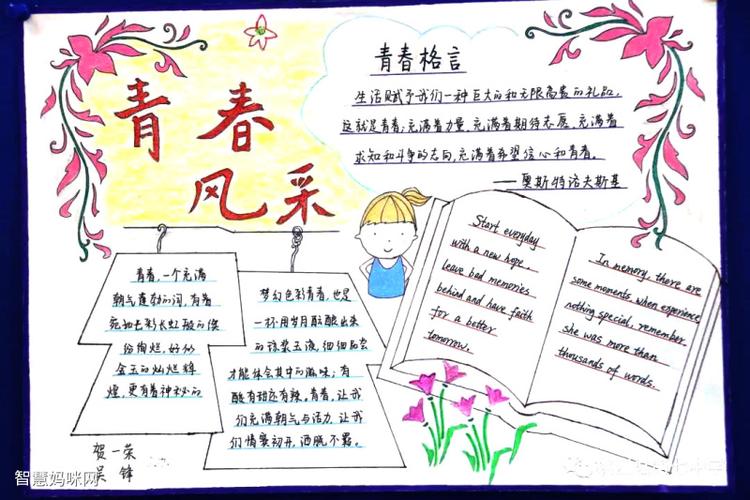 青春
风采
青春格言
生活赋予我们一种巨大的和无限高贵的礼品,
这就是青春:充满着力量,充满着期待志愿,充满着
求知和斗争的志向,充满着希望信心和青春。
——奥斯特洛夫斯基
青春,一个充满
朝气蓬勃的词,有着
宛如七彩长虹般的缤
纷绚烂,好似
金玉的灿烂辉
煌,更有着神秘的
梦幻色彩青春,也是
一杯用岁月酝酿出来
的琼浆玉液,细细品尝
才能体会其中的滋味;有
酸有甜应有辣。青春,让我
们充满朝气与活力,让我
们情窦初开,洒脱不羁。
Start everyday
with a new hope,
leave bad memories
behind and have faith
for a better
tomorrow.
In memory, there are
some moments, when experience
nothing special, remember
she was more than
thousands of words.
贺一荣
吴锋
智慧妈咪网